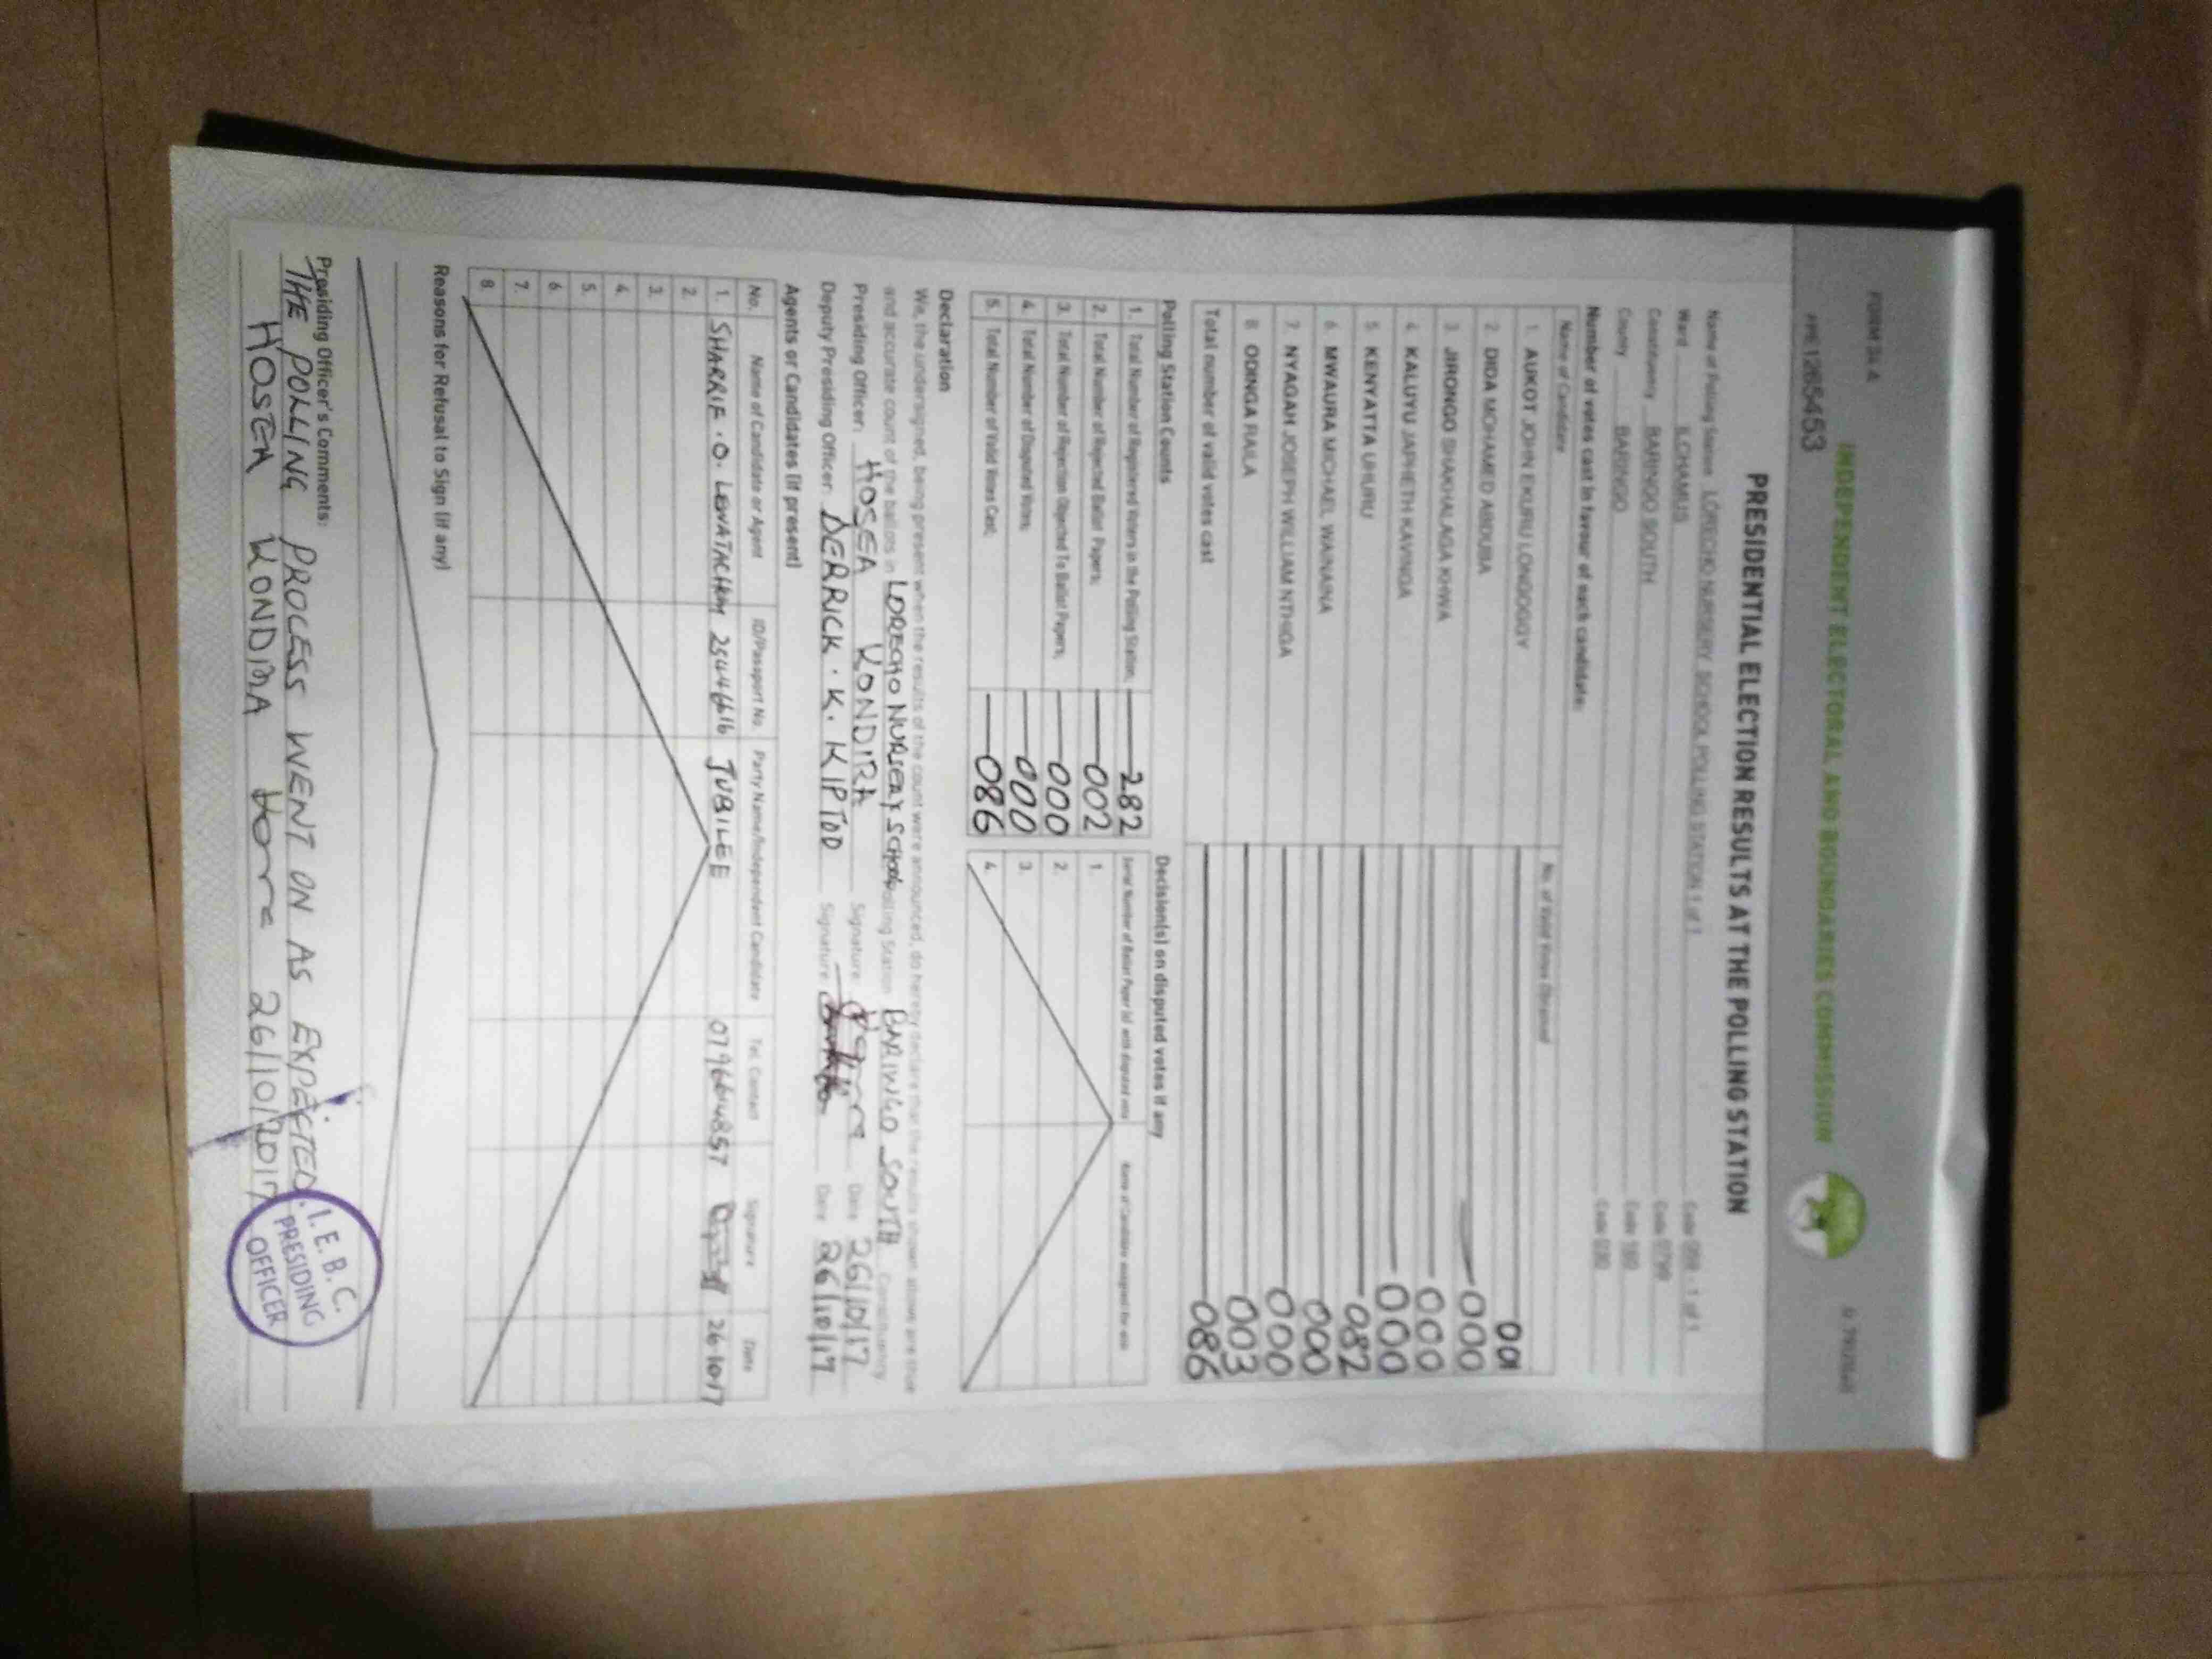 FORM 34 A
PPE 1265453
INDEPENDENT ELECTORAL AND BOUNDARIES COMMISSION
PRESIDENTIAL ELECTION RESULTS AT THE POLLING STATION
Name of Polling Station LORECHO NURSERY SCHOOL POLLING STATION 1 of 1 Code 1 of 1
Ward ILCHAMUS Code
Constituency BARINGO SOUTH Code
County BARINGO Code
Number of votes cast in favour of each candidate:
Name of Candidate No. of Valid Votes Obtained
1. AUKOT JOHN EKURU LONGOGGY 001
2. DIDA MOHAMED ABDUBA 000
3. JIRONGO SHAKHALAGA KHWA 000
4. KALUYU JAPHETH KAVINGA 000
5. KENYATTA UHURU 082
6. MWAURA MICHAEL WAINAINA 000
7. NYAGAH JOSEPH WILLIAM NTHIGA 000
8. ODINGA RAILA 003
Total number of valid votes cast 086
Polling Station Counts
1. Total Number of Registered Voters in the Polling Station; 282
2. Total Number of Rejected Ballot Papers; 002
3. Total Number of Rejection Objected To Ballot Papers; 000
4. Total Number of Disputed Votes; 000
5. Total Number of Valid Votes Cast; 086
Decision(s) on disputed votes if any
Serial Number of Ballot Paper (s) with disputed vote Name of Candidate assigned the vote
1.
2.
3.
4.
Declaration
We, the undersigned, being present when the results of the count were announced, do hereby declare that the results shown above are true
and accurate count of the ballots in LORECHO NURSERY SCHOOL Polling Station BARINGO SOUTH Constituency
Presiding Officer: HOSEA KONDIRA Signature Date 26/10/17
Deputy Presiding Officer: DERRICK . K . KIPTOO Signature Date 26/10/17
Agents or Candidates (if present)
No. Name of Candidate or Agent ID/Passport No. Party Name/Independent Candidate Tel. Contact Signature Date
1. SHARRIF .O. 25446616 JUBILEE 26.10.17
2.
3.
4.
5.
6.
7.
8.
Reasons for Refusal to Sign (if any)
Presiding Officer's Comments:
THE POLLING PROCESS WENT ON AS EXPECTED.
HOSEA KONDIRA 26/10/2017
I. E. B. C.
PRESIDING
OFFICER